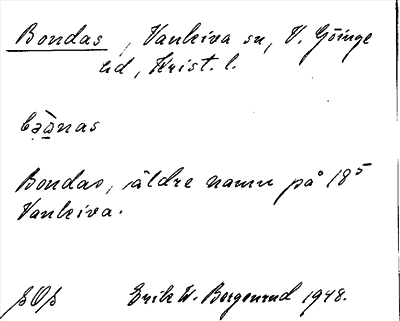 Bondas, Vankiva sn, V. Göinge
hd, Krist. l.
Bondas, äldre namn på 18⁵
Vankiva.
Erik W. Bergenrud 1948.